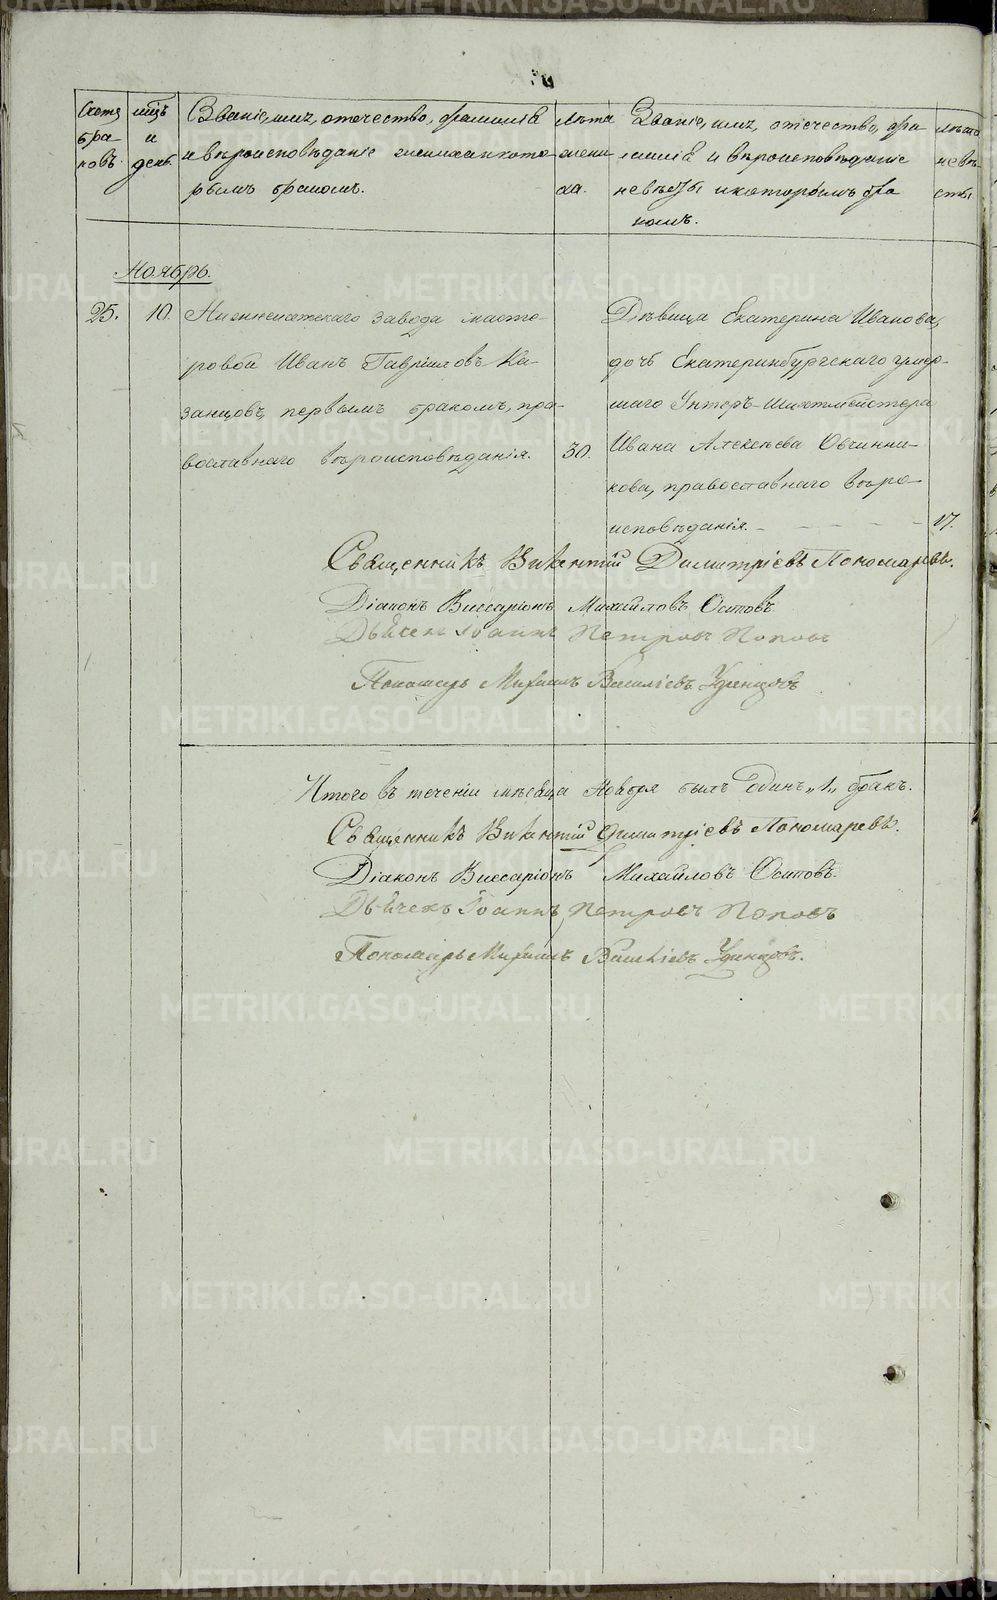 Счетъ бра- ковъ.
мѣсъ и день.
Званіе, имя, отечество, фамилія и вѣроисповѣданіе жениха и кото- рымъ бракомъ.
лѣта жени ха.
Званіе, имя, отечество, фа милія и вѣроисповѣданіе невѣсты и которымъ бра комъ.
лѣта невѣ- сты
Ноябрь.
25. 10. Нижнеисетскаго завода масте-
ровой Иванъ Гавріиловъ Ка-
занцовъ, первымъ бракомъ, пра-
вославнаго вѣроисповѣданія. 30.
Дѣвица Екатерина Иванова,
дочь Екатеринбургскаго умер-
шаго Унтеръ-Шихтмейстера
Ивана Алексѣева Овчинни-
кова, православнаго вѣро-
исповѣданія. - - - - - 17.
Священникъ Викентій Димитріевъ Пономаревъ.
Діаконъ Виссаріонъ Михайловъ Осиповъ
Дьячекъ Іоаннъ Петровъ Поповъ
Пономарь Михаилъ Василіевъ Удинцовъ
Итого въ теченіи мѣсяца Ноября былъ Одинъ „1„ бракъ.
Священникъ Викентій Димитріевъ Пономаревъ.
Діаконъ Виссаріонъ Михайловъ Осиповъ.
Дьячекъ Іоаннъ Петровъ Поповъ
Пономарь Михаилъ Василіевъ Удинцовъ.
METRIKI.GASO-URAL.RU